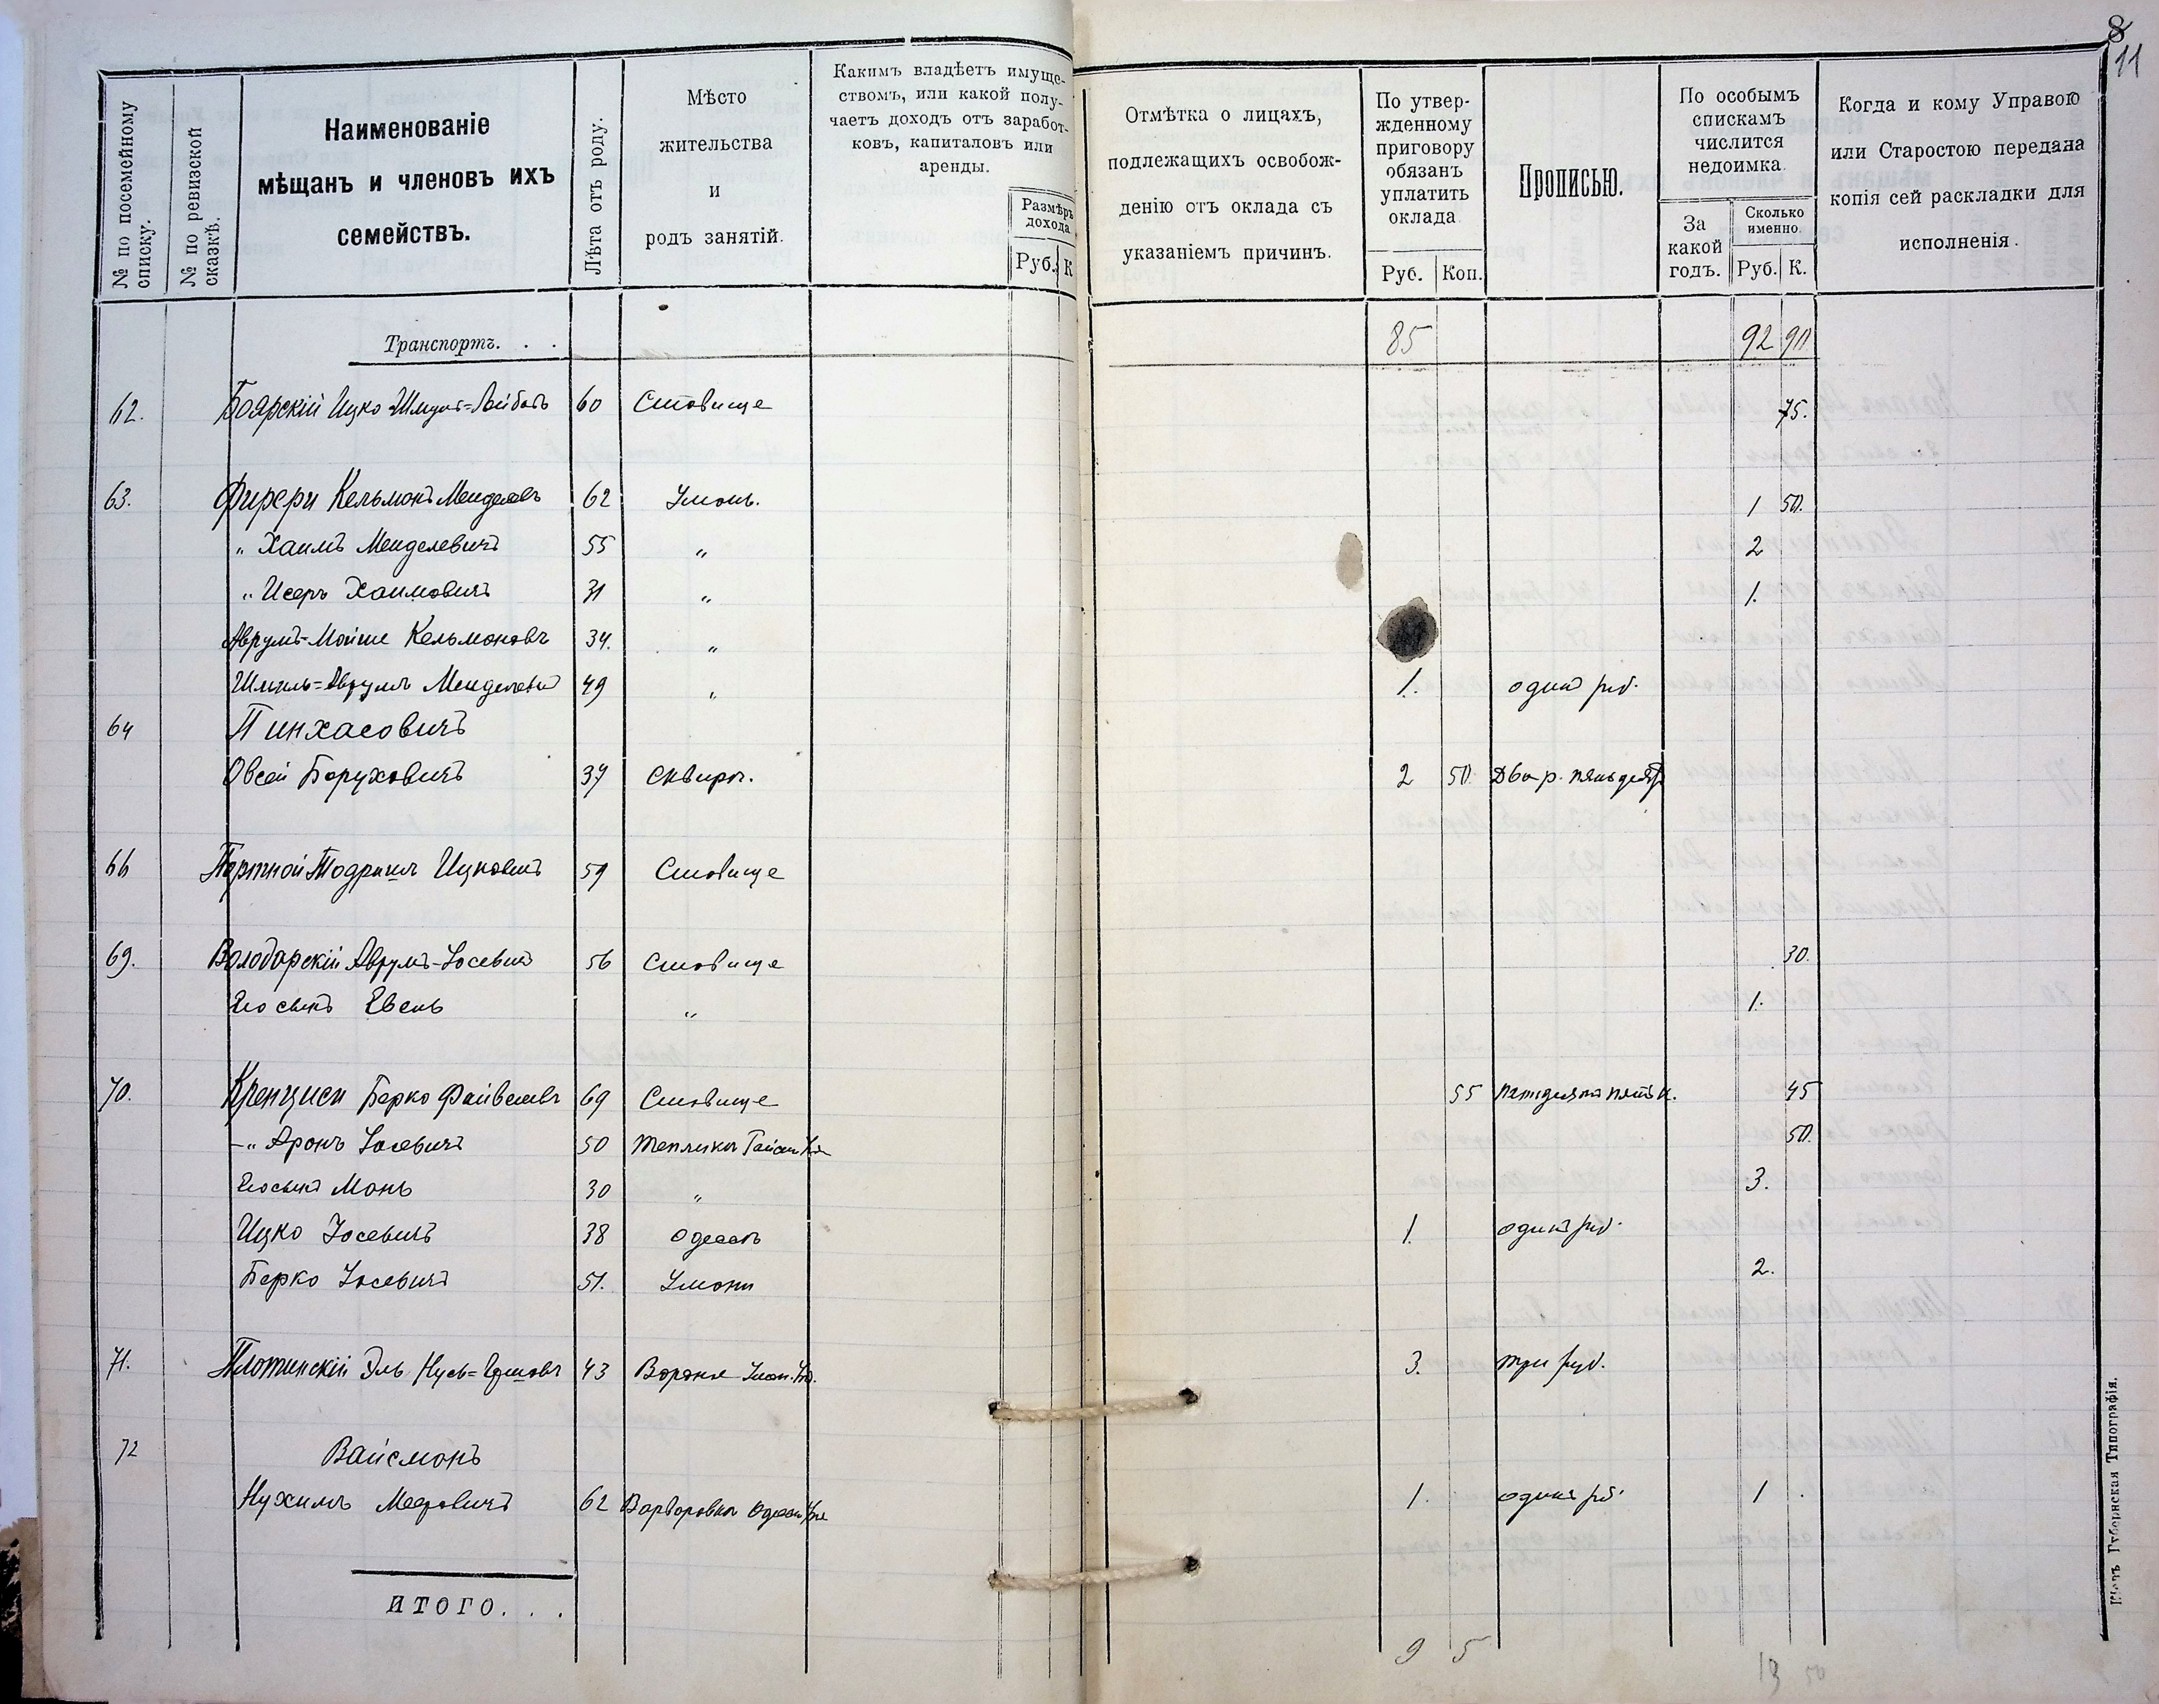 8
11
№ по посемейному списку.
№ по ревизской сказкѣ.
Наименованіе
мѣщанъ и членовъ ихъ
семействъ.
Лѣта отъ роду.
Мѣсто
жительства
и
родъ занятій.
Какимъ владѣетъ имуще-
ствомъ, или какой полу-
чаетъ доходъ отъ заработ-
ковъ, капиталовъ или
аренды.
Размѣръ
дохода
Руб. К
Отмѣтка о лицахъ,
подлежащихъ освобож-
денію отъ оклада съ
указаніемъ причинъ.
По утвер-
жденному
приговору
обязанъ
уплатить
оклада
Руб. Коп.
Прописью.
По особымъ
спискамъ
числится
недоимка.
За
какой
годъ.
Сколько
именно.
Руб. К.
Когда и кому Управою
или Старостою передана
копія сей раскладки для
исполненія.
Транспортъ. . . 85 92 90
62. Боярскій Ицко 60 Ставище 75.
63. Кельманъ Менделевъ 62 Умань. 1 50.
" Хаимъ Менделевичъ 55 " 2
" Исеръ Хаимовичъ 31 " 1.
Аврумъ-Мойше Кельмановъ 34. "
Шмиль=Аврумъ Менделевъ 49 " 1. один руб.
64 Пинхасовичъ
Овсей Боруховичъ 37 Сквира. 2 50. Два р. пятьдесят
66 Портной Ицковичъ 59 Ставище
69. Володарскій Аврумъ-Іосевичъ 56 Ставище 30.
Его сынъ Евель " 1.
70. Берко Файвелевъ 69 Ставище 55 пятьдесятъ пять к. 45
-" Аронъ Іосевичъ 50 Тепликъ 50.
Его сынъ Монь 30 " 3.
Ицко Іосевичъ 38 Одесса 1. одинъ руб.
Берко Іосевичъ 51. Умани 2.
71. Плотинскій Эль 43 3. три руб.
72 Вайсманъ
Нухимъ Мееровичъ 62 Варваровка 1. одинъ руб. 1
ИТОГО. . .
9 5 13 50
Кіевъ Губернская Типографія.